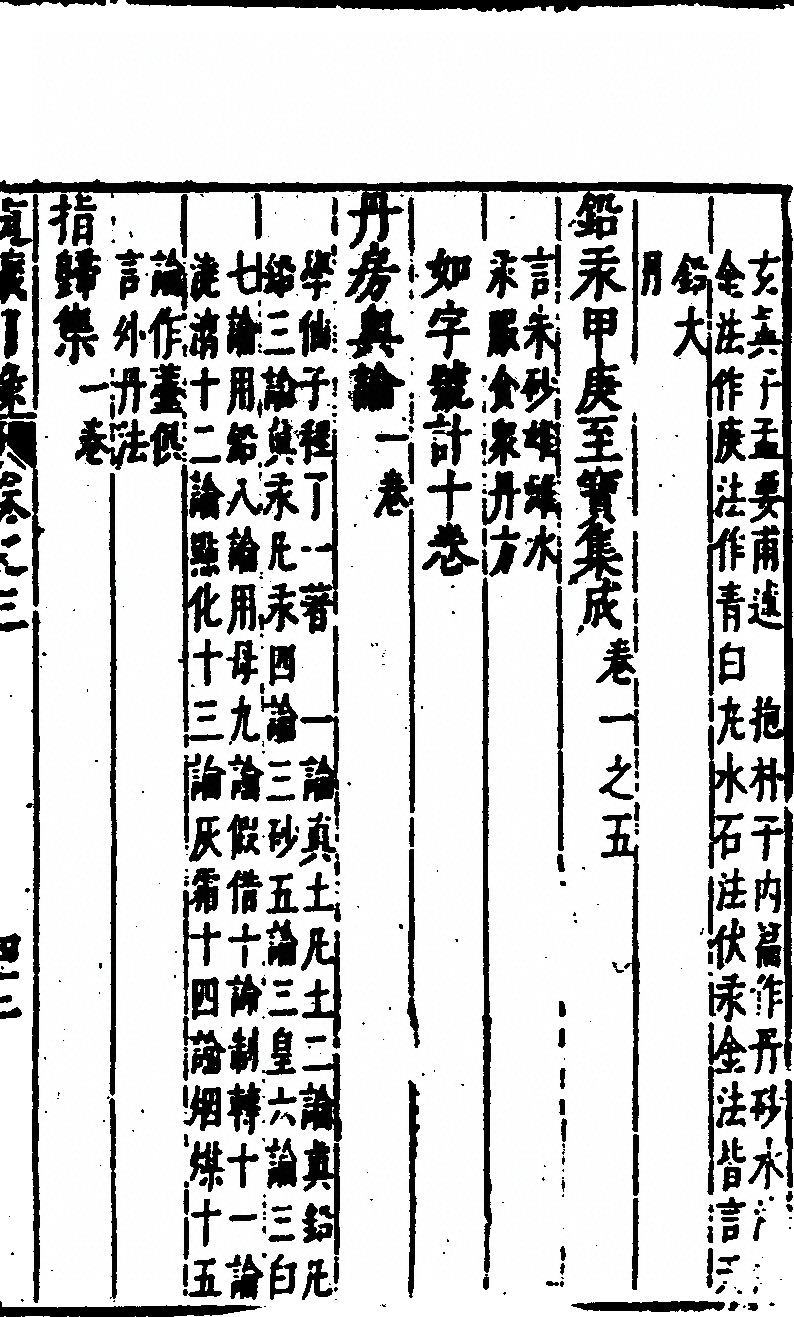 玄真子孟要甫述　抱朴子内篇作丹砂水
金法作庚法作青白九水石法伏汞金法皆言
鉛大
丹
鉛汞甲庚至寶集成卷一之五
言朱砂雄雌水
汞服食衆丹方
如字號計十卷
丹房奥論一卷
學仙子程了一著　一論真土凡土二論真鉛凡
鉛三論真汞凡汞四論三砂五論三皇六論三白
七論用鉛八論用母九論假借十論制轉十一論
澆淋十二論點化十三論灰霜十四論烟煤十五
論作蓋俱
言外丹法
指歸集一卷
卷之三
四十二